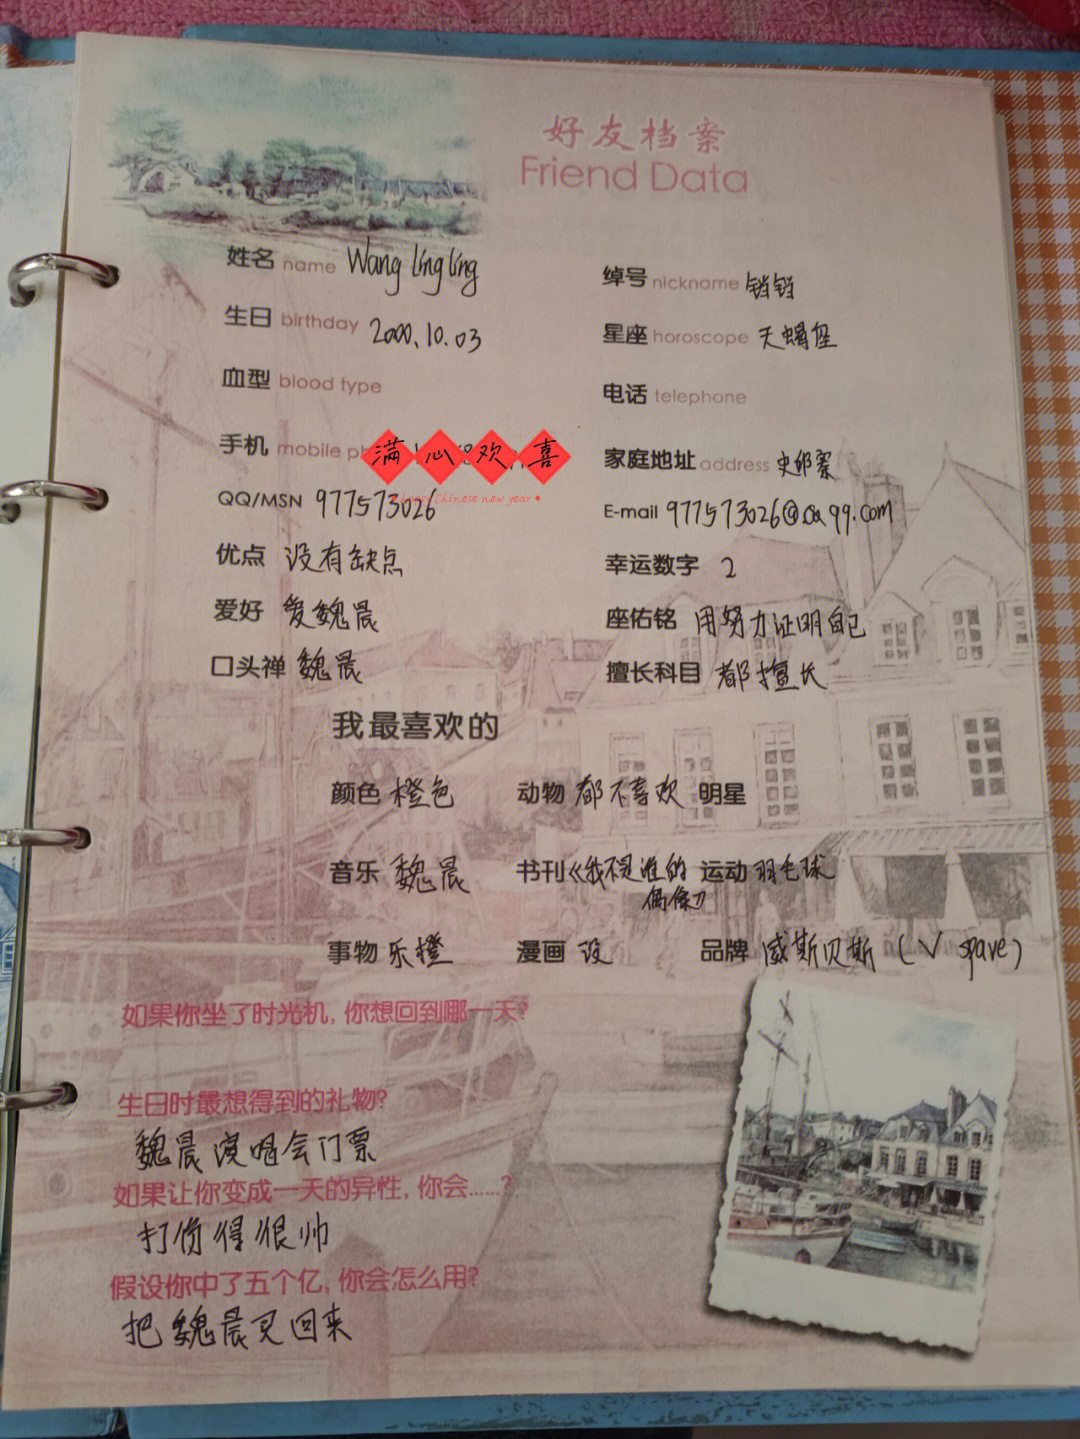 好友档案
Friend Data
姓名 name Wang líng líng 绰号 nickname 铛铛
生日 birthday 2000.10.03 星座 horoscope 天蝎座
血型 blood type 电话 telephone
手机 mobile 满心欢喜 家庭地址 address 史邱寨
happy Chinese new year
QQ/MSN 977573026 E-mail 977573026@qq.com
优点 没有缺点 幸运数字 2
爱好 爱魏晨 座佑铭 用努力证明自己
口头禅 魏晨 擅长科目 都擅长
我最喜欢的
颜色 橙色 动物 都不喜欢 明星
音乐 魏晨 书刊《我不是谁的偶像》 运动 羽毛球
事物 乐橙 漫画 没 品牌 威斯贝斯（V spave）
如果你坐了时光机，你想回到哪一天？
生日时最想得到的礼物？
魏晨演唱会门票
如果让你变成一天的异性，你会……？
打扮得很帅
假设你中了五个亿，你会怎么用？
把魏晨买回来